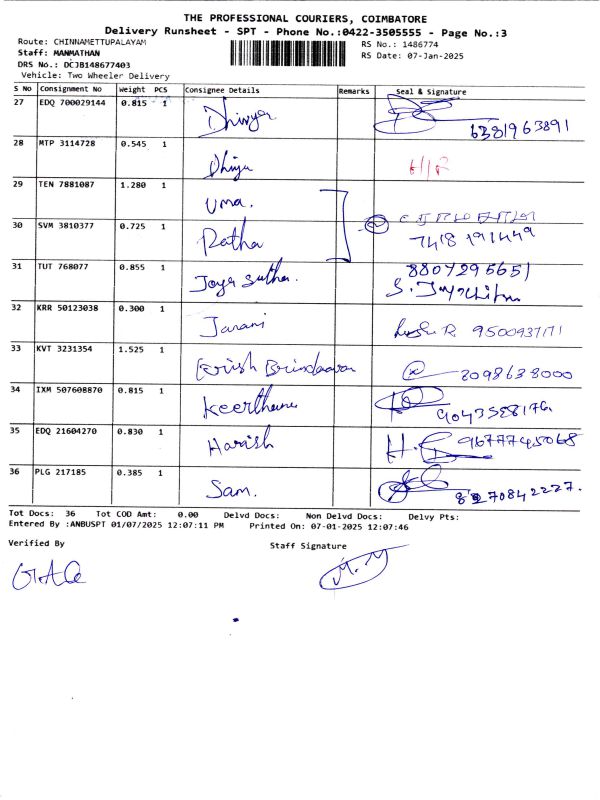 THE PROFESSIONAL COURIERS, COIMBATORE
Delivery Runsheet - SPT - Phone No.:0422-3505555 - Page No.:3
Route: CHINNAMETTUPALAYAM
RS No.: 1486774
Staff: MANMATHAN
RS Date: 07-Jan-2025
DRS No.: DCJB148677403
Vehicle: Two Wheeler Delivery
S No Consignment No Weight PCS Consignee Details Remarks Seal & Signature
27 EDQ 700029144 0.815 1 Dhivya 6381963891
28 MTP 3114728 0.545 1 Dhiya
29 TEN 7881087 1.280 1 Uma.
30 SVM 3810377 0.725 1 Ratha 7418191449
31 TUT 768077 0.855 1 Jaya Sutha. 8807295651
32 KRR 50123038 0.300 1 Janani 9500937171
33 KVT 3231354 1.525 1 2098638000
34 IXM 507608870 0.815 1 Keerthana
35 EDQ 21604270 0.830 1 Harish 9677745068
36 PLG 217185 0.385 1 Sam.
Tot Docs: 36 Tot COD Amt: 0.00 Delvd Docs: Non Delvd Docs: Delvy Pts:
Entered By :ANBUSPT 01/07/2025 12:07:11 PM Printed On: 07-01-2025 12:07:46
Verified By Staff Signature
M.M